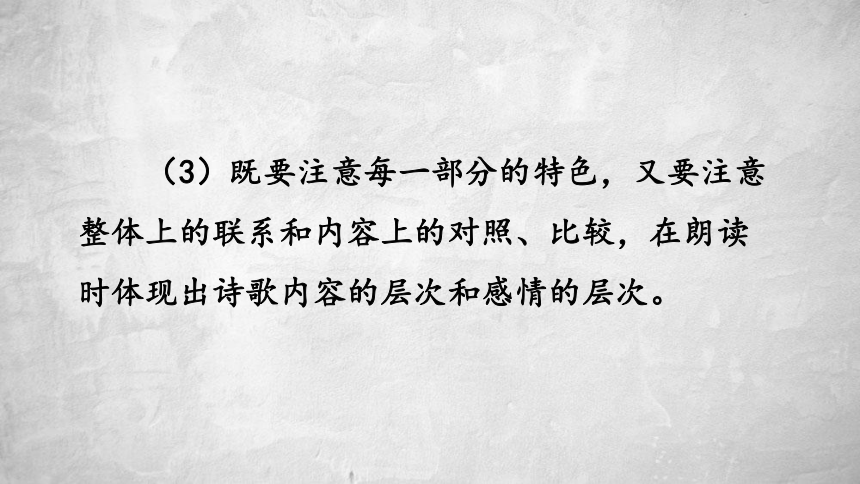 （3）既要注意每一部分的特色，又要注意
整体上的联系和内容上的对照、比较，在朗读
时体现出诗歌内容的层次和感情的层次。